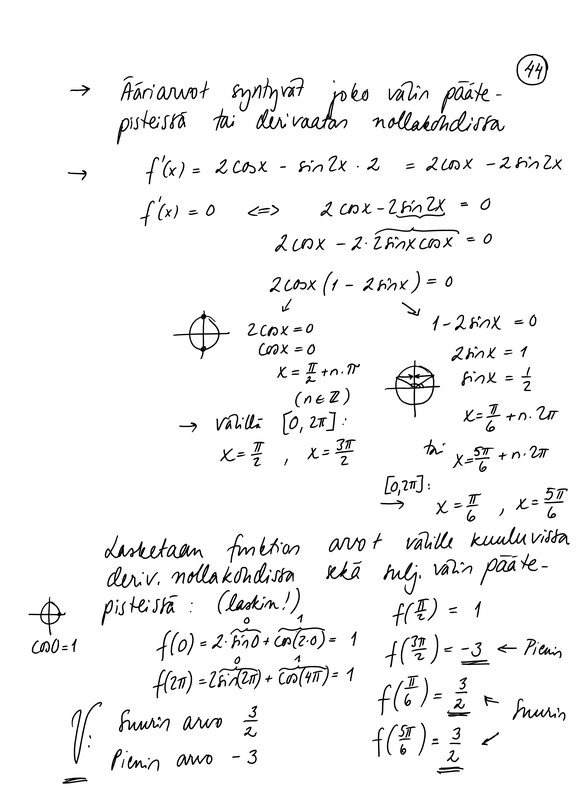 44
→ Ääriarvot syntyvät joko välin pääte-
pisteissä tai derivaatan nollakohdissa
→ f'(x) = 2cosx - sin2x · 2 = 2cosx - 2sin2x
f'(x) = 0 <=> 2cosx - 2sin2x = 0
2cosx - 2·2sinxcosx = 0
2cosx(1 - 2sinx) = 0
2cosx = 0
cosx = 0
x = π/2 + n·π
(n∈ℤ)
→ välillä [0, 2π]:
x = π/2 , x = 3π/2
1 - 2sinx = 0
2sinx = 1
sinx = 1/2
x = π/6 + n·2π
tai x = 5π/6 + n·2π
[0,2π]:
→ x = π/6 , x = 5π/6
Lasketaan funktion arvot välille kuuluvissa
deriv. nollakohdissa sekä sulj. välin pääte-
pisteissä: (laskin!)
cos0=1
0 1
f(0) = 2·sin0 + cos(2·0) = 1
0 1
f(2π) = 2sin(2π) + cos(4π) = 1
f(π/2) = 1
f(3π/2) = -3 ← Pienin
f(π/6) = 3/2 ← Suurin
f(5π/6) = 3/2 ↙
V: Suurin arvo 3/2
Pienin arvo -3